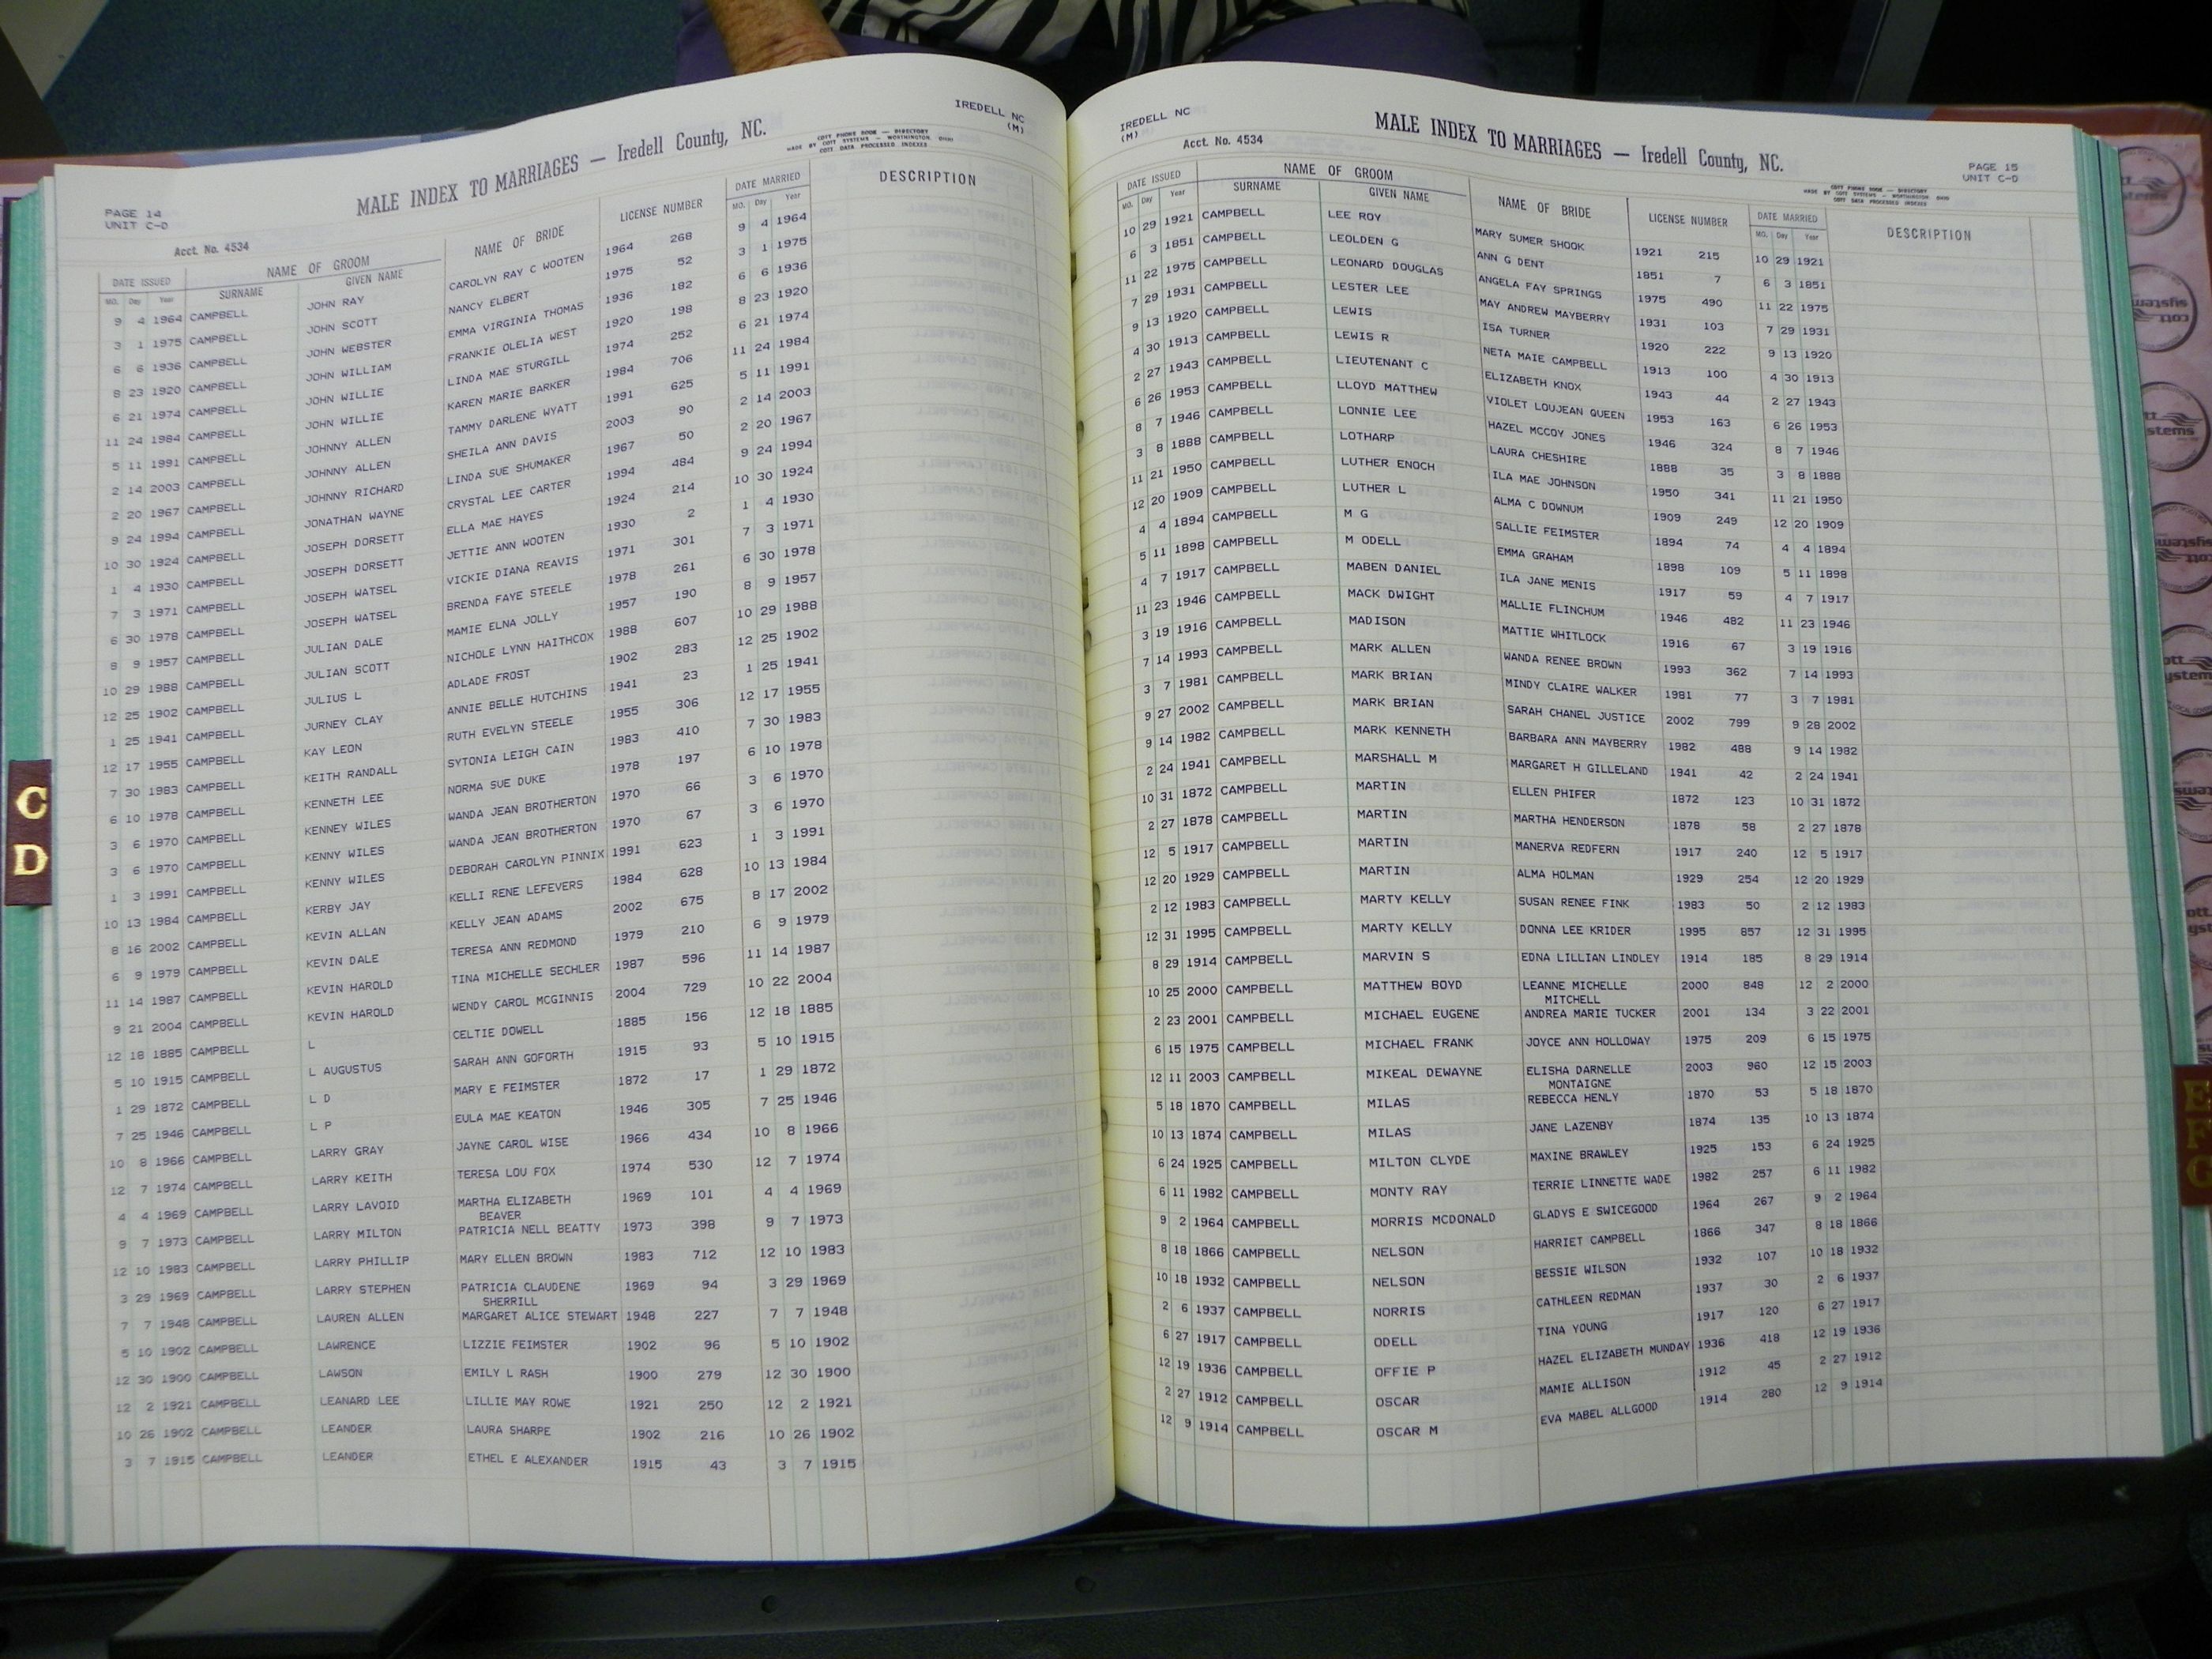 IREDELL NC
(M)
MALE INDEX TO MARRIAGES — Iredell County, NC.
COTT PHONE BOOK — DIRECTORY
MADE BY COTT SYSTEMS — WORTHINGTON, OHIO
COTT DATA PROCESSED INDEXES
PAGE 14
UNIT C-D
Acct. No. 4534
DATE ISSUED NAME OF GROOM NAME OF BRIDE LICENSE NUMBER DATE MARRIED DESCRIPTION
MO. Day Year SURNAME GIVEN NAME MO. Day Year
9 4 1964 CAMPBELL JOHN RAY CAROLYN RAY C WOOTEN 1964 268 9 4 1964
3 1 1975 CAMPBELL JOHN SCOTT NANCY ELBERT 1975 52 3 1 1975
6 6 1936 CAMPBELL JOHN WEBSTER EMMA VIRGINIA THOMAS 1936 182 6 6 1936
8 23 1920 CAMPBELL JOHN WILLIAM FRANKIE OLELIA WEST 1920 198 8 23 1920
6 21 1974 CAMPBELL JOHN WILLIE LINDA MAE STURGILL 1974 252 6 21 1974
11 24 1984 CAMPBELL JOHN WILLIE KAREN MARIE BARKER 1984 706 11 24 1984
5 11 1991 CAMPBELL JOHNNY ALLEN TAMMY DARLENE WYATT 1991 625 5 11 1991
2 14 2003 CAMPBELL JOHNNY ALLEN SHEILA ANN DAVIS 2003 90 2 14 2003
2 20 1967 CAMPBELL JOHNNY RICHARD LINDA SUE SHUMAKER 1967 50 2 20 1967
9 24 1994 CAMPBELL JONATHAN WAYNE CRYSTAL LEE CARTER 1994 484 9 24 1994
10 30 1924 CAMPBELL JOSEPH DORSETT ELLA MAE HAYES 1924 214 10 30 1924
1 4 1930 CAMPBELL JOSEPH DORSETT JETTIE ANN WOOTEN 1930 2 1 4 1930
7 3 1971 CAMPBELL JOSEPH WATSEL VICKIE DIANA REAVIS 1971 301 7 3 1971
6 30 1978 CAMPBELL JOSEPH WATSEL BRENDA FAYE STEELE 1978 261 6 30 1978
8 9 1957 CAMPBELL JULIAN DALE MAMIE ELNA JOLLY 1957 190 8 9 1957
10 29 1988 CAMPBELL JULIAN SCOTT NICHOLE LYNN HAITHCOX 1988 607 10 29 1988
12 25 1902 CAMPBELL JULIUS L ADLADE FROST 1902 283 12 25 1902
1 25 1941 CAMPBELL JURNEY CLAY ANNIE BELLE HUTCHINS 1941 23 1 25 1941
12 17 1955 CAMPBELL KAY LEON RUTH EVELYN STEELE 1955 306 12 17 1955
7 30 1983 CAMPBELL KEITH RANDALL SYTONIA LEIGH CAIN 1983 410 7 30 1983
6 10 1978 CAMPBELL KENNETH LEE NORMA SUE DUKE 1978 197 6 10 1978
3 6 1970 CAMPBELL KENNEY WILES WANDA JEAN BROTHERTON 1970 66 3 6 1970
3 6 1970 CAMPBELL KENNY WILES WANDA JEAN BROTHERTON 1970 67 3 6 1970
1 3 1991 CAMPBELL KENNY WILES DEBORAH CAROLYN PINNIX 1991 623 1 3 1991
10 13 1984 CAMPBELL KERBY JAY KELLI RENE LEFEVERS 1984 628 10 13 1984
8 16 2002 CAMPBELL KEVIN ALLAN KELLY JEAN ADAMS 2002 675 8 17 2002
6 9 1979 CAMPBELL KEVIN DALE TERESA ANN REDMOND 1979 210 6 9 1979
11 14 1987 CAMPBELL KEVIN HAROLD TINA MICHELLE SECHLER 1987 596 11 14 1987
9 21 2004 CAMPBELL KEVIN HAROLD WENDY CAROL MCGINNIS 2004 729 10 22 2004
12 18 1885 CAMPBELL L CELTIE DOWELL 1885 156 12 18 1885
5 10 1915 CAMPBELL L AUGUSTUS SARAH ANN GOFORTH 1915 93 5 10 1915
1 29 1872 CAMPBELL L D MARY E FEIMSTER 1872 17 1 29 1872
7 25 1946 CAMPBELL L P EULA MAE KEATON 1946 305 7 25 1946
10 8 1966 CAMPBELL LARRY GRAY JAYNE CAROL WISE 1966 434 10 8 1966
12 7 1974 CAMPBELL LARRY KEITH TERESA LOU FOX 1974 530 12 7 1974
4 4 1969 CAMPBELL LARRY LAVOID MARTHA ELIZABETH 1969 101 4 4 1969
BEAVER
9 7 1973 CAMPBELL LARRY MILTON PATRICIA NELL BEATTY 1973 398 9 7 1973
12 10 1983 CAMPBELL LARRY PHILLIP MARY ELLEN BROWN 1983 712 12 10 1983
3 29 1969 CAMPBELL LARRY STEPHEN PATRICIA CLAUDENE 1969 94 3 29 1969
SHERRILL
7 7 1948 CAMPBELL LAUREN ALLEN MARGARET ALICE STEWART 1948 227 7 7 1948
5 10 1902 CAMPBELL LAWRENCE LIZZIE FEIMSTER 1902 96 5 10 1902
12 30 1900 CAMPBELL LAWSON EMILY L RASH 1900 279 12 30 1900
12 2 1921 CAMPBELL LEANARD LEE LILLIE MAY ROWE 1921 250 12 2 1921
10 26 1902 CAMPBELL LEANDER LAURA SHARPE 1902 216 10 26 1902
3 7 1915 CAMPBELL LEANDER ETHEL E ALEXANDER 1915 43 3 7 1915
C
D
IREDELL NC
(M)
Acct. No. 4534
MALE INDEX TO MARRIAGES — Iredell County, NC.
PAGE 15
UNIT C-D
COTT PHONE BOOK — DIRECTORY
MADE BY COTT SYSTEMS — WORTHINGTON, OHIO
COTT DATA PROCESSED INDEXES
DATE ISSUED NAME OF GROOM NAME OF BRIDE LICENSE NUMBER DATE MARRIED DESCRIPTION
MO. Day Year SURNAME GIVEN NAME MO. Day Year
10 29 1921 CAMPBELL LEE ROY MARY SUMER SHOOK 1921 215 10 29 1921
6 3 1851 CAMPBELL LEOLDEN G ANN G DENT 1851 7 6 3 1851
11 22 1975 CAMPBELL LEONARD DOUGLAS ANGELA FAY SPRINGS 1975 490 11 22 1975
7 29 1931 CAMPBELL LESTER LEE MAY ANDREW MAYBERRY 1931 103 7 29 1931
9 13 1920 CAMPBELL LEWIS ISA TURNER 1920 222 9 13 1920
4 30 1913 CAMPBELL LEWIS R NETA MAIE CAMPBELL 1913 100 4 30 1913
2 27 1943 CAMPBELL LIEUTENANT C ELIZABETH KNOX 1943 44 2 27 1943
6 26 1953 CAMPBELL LLOYD MATTHEW VIOLET LOUJEAN QUEEN 1953 163 6 26 1953
8 7 1946 CAMPBELL LONNIE LEE HAZEL MCCOY JONES 1946 324 8 7 1946
3 8 1888 CAMPBELL LOTHARP LAURA CHESHIRE 1888 35 3 8 1888
11 21 1950 CAMPBELL LUTHER ENOCH ILA MAE JOHNSON 1950 341 11 21 1950
12 20 1909 CAMPBELL LUTHER L ALMA C DOWNUM 1909 249 12 20 1909
4 4 1894 CAMPBELL M G SALLIE FEIMSTER 1894 74 4 4 1894
5 11 1898 CAMPBELL M ODELL EMMA GRAHAM 1898 109 5 11 1898
4 7 1917 CAMPBELL MABEN DANIEL ILA JANE MENIS 1917 59 4 7 1917
11 23 1946 CAMPBELL MACK DWIGHT MALLIE FLINCHUM 1946 482 11 23 1946
3 19 1916 CAMPBELL MADISON MATTIE WHITLOCK 1916 67 3 19 1916
7 14 1993 CAMPBELL MARK ALLEN WANDA RENEE BROWN 1993 362 7 14 1993
3 7 1981 CAMPBELL MARK BRIAN MINDY CLAIRE WALKER 1981 77 3 7 1981
9 27 2002 CAMPBELL MARK BRIAN SARAH CHANEL JUSTICE 2002 799 9 28 2002
9 14 1982 CAMPBELL MARK KENNETH BARBARA ANN MAYBERRY 1982 488 9 14 1982
2 24 1941 CAMPBELL MARSHALL M MARGARET H GILLELAND 1941 42 2 24 1941
10 31 1872 CAMPBELL MARTIN ELLEN PHIFER 1872 123 10 31 1872
2 27 1878 CAMPBELL MARTIN MARTHA HENDERSON 1878 58 2 27 1878
12 5 1917 CAMPBELL MARTIN MANERVA REDFERN 1917 240 12 5 1917
12 20 1929 CAMPBELL MARTIN ALMA HOLMAN 1929 254 12 20 1929
2 12 1983 CAMPBELL MARTY KELLY SUSAN RENEE FINK 1983 50 2 12 1983
12 31 1995 CAMPBELL MARTY KELLY DONNA LEE KRIDER 1995 857 12 31 1995
8 29 1914 CAMPBELL MARVIN S EDNA LILLIAN LINDLEY 1914 185 8 29 1914
10 25 2000 CAMPBELL MATTHEW BOYD LEANNE MICHELLE 2000 848 12 2 2000
MITCHELL
2 23 2001 CAMPBELL MICHAEL EUGENE ANDREA MARIE TUCKER 2001 134 3 22 2001
6 15 1975 CAMPBELL MICHAEL FRANK JOYCE ANN HOLLOWAY 1975 209 6 15 1975
12 11 2003 CAMPBELL MIKEAL DEWAYNE ELISHA DARNELLE 2003 960 12 15 2003
MONTAIGNE
5 18 1870 CAMPBELL MILAS REBECCA HENLY 1870 53 5 18 1870
10 13 1874 CAMPBELL MILAS JANE LAZENBY 1874 135 10 13 1874
6 24 1925 CAMPBELL MILTON CLYDE MAXINE BRAWLEY 1925 153 6 24 1925
6 11 1982 CAMPBELL MONTY RAY TERRIE LINNETTE WADE 1982 257 6 11 1982
9 2 1964 CAMPBELL MORRIS MCDONALD GLADYS E SWICEGOOD 1964 267 9 2 1964
8 18 1866 CAMPBELL NELSON HARRIET CAMPBELL 1866 347 8 18 1866
10 18 1932 CAMPBELL NELSON BESSIE WILSON 1932 107 10 18 1932
2 6 1937 CAMPBELL NORRIS CATHLEEN REDMAN 1937 30 2 6 1937
6 27 1917 CAMPBELL ODELL TINA YOUNG 1917 120 6 27 1917
12 19 1936 CAMPBELL OFFIE P HAZEL ELIZABETH MUNDAY 1936 418 12 19 1936
2 27 1912 CAMPBELL OSCAR MAMIE ALLISON 1912 45 2 27 1912
12 9 1914 CAMPBELL OSCAR M EVA MABEL ALLGOOD 1914 280 12 9 1914
E
F
G